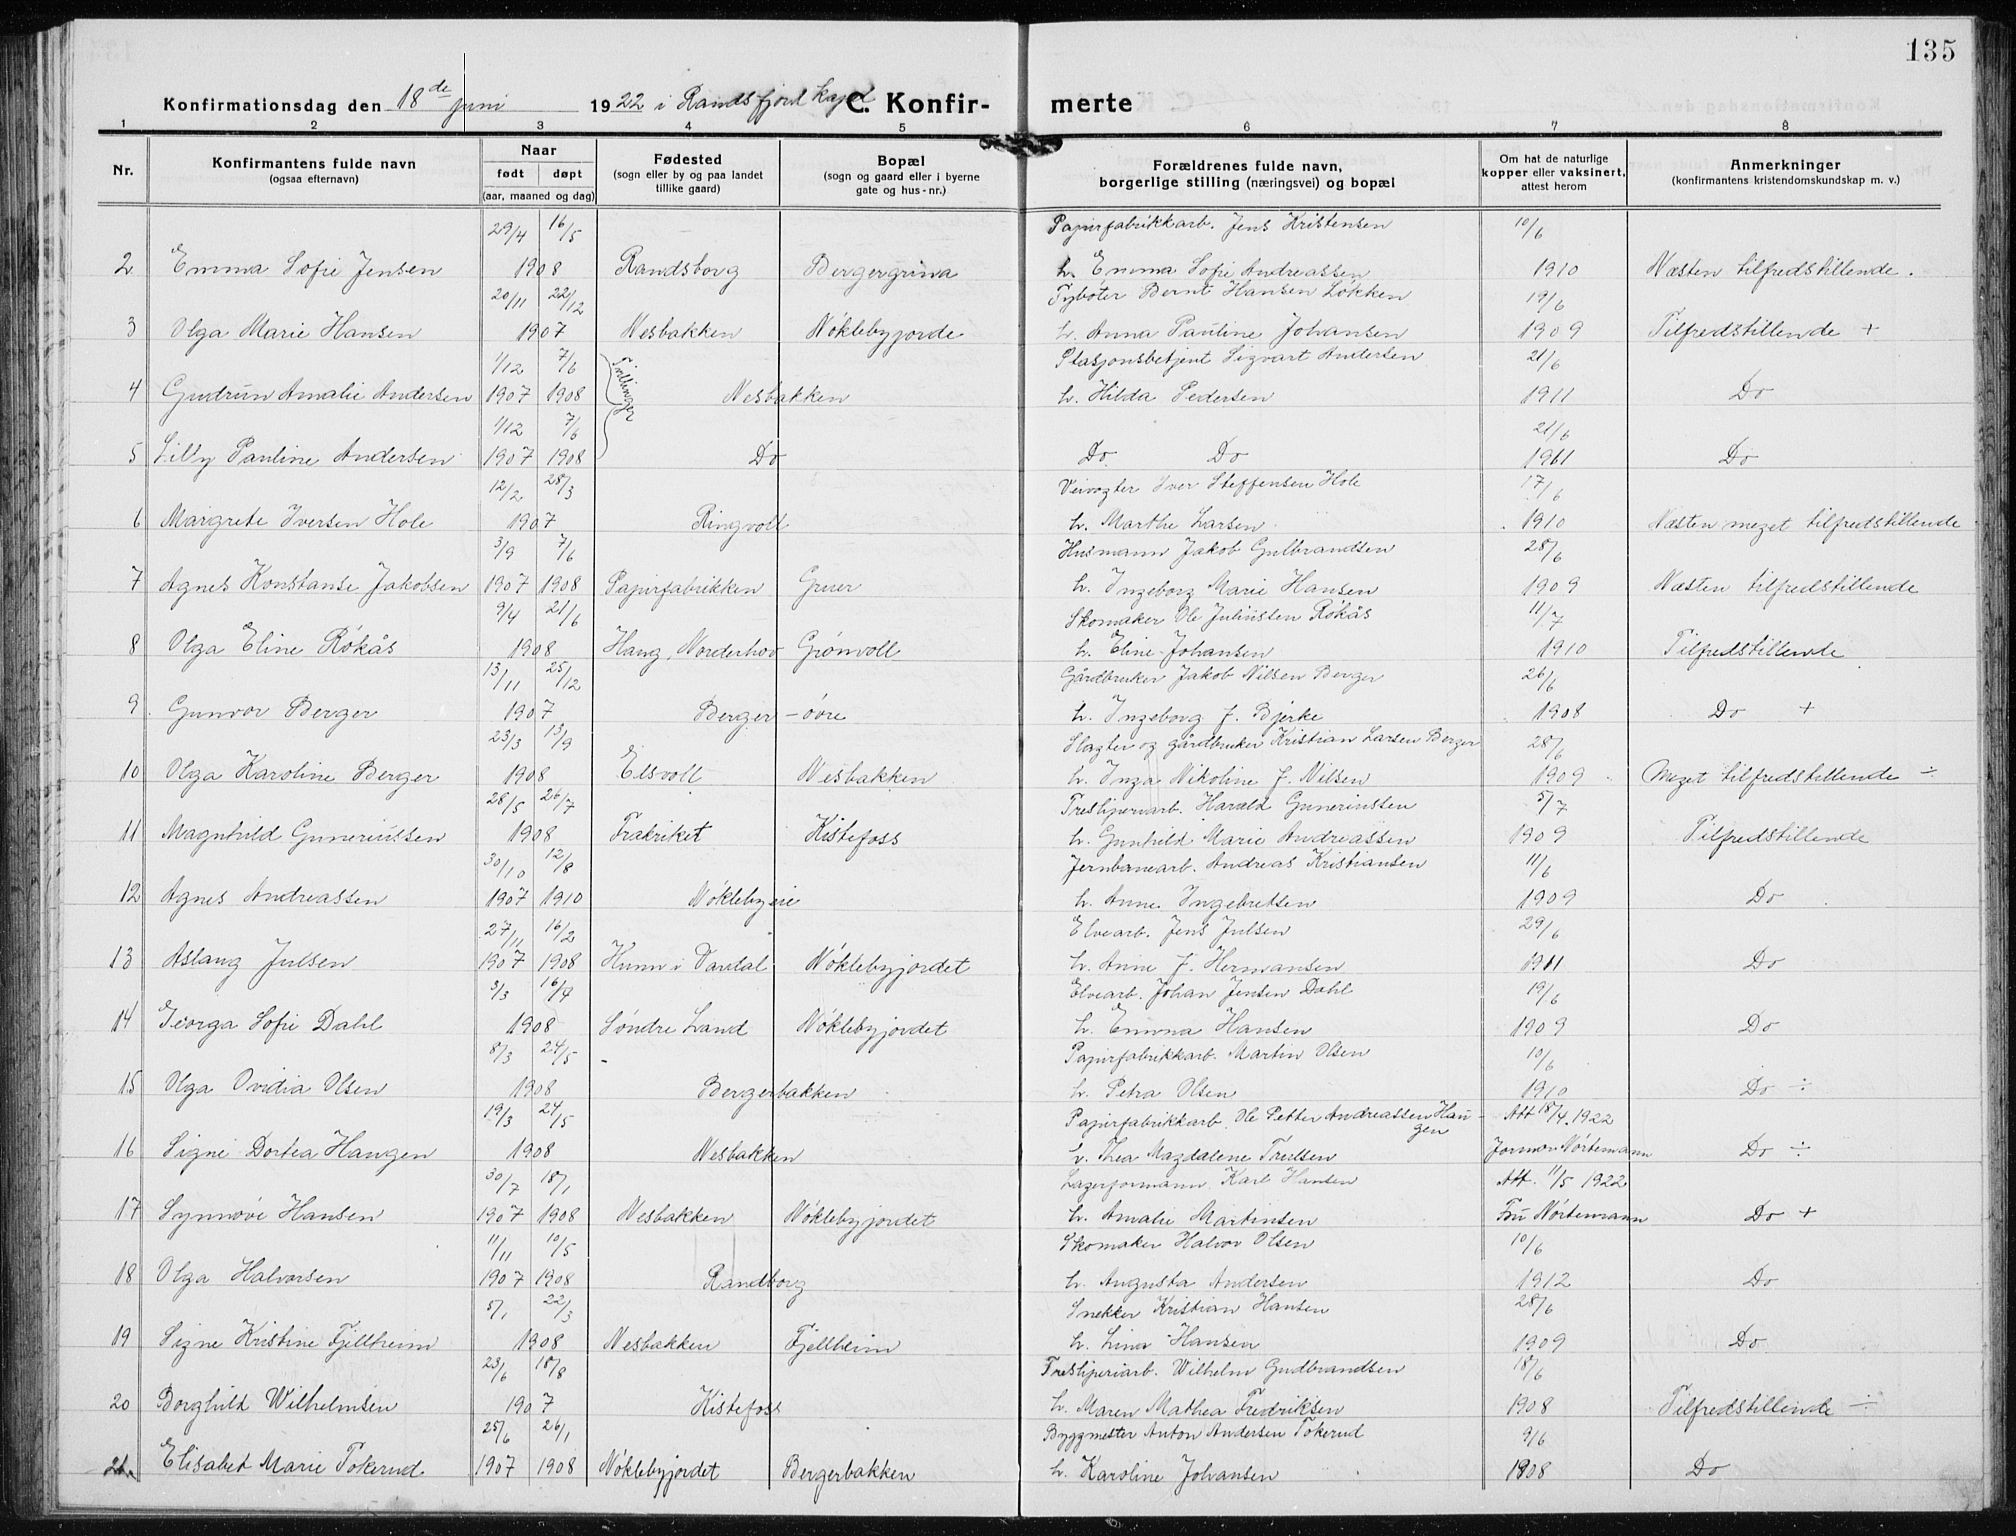 135
Konfirmationsdag den 18de juni 1922 i Randsfjord kapel C. Konfir- merte
1 2 3 4 5 6 7 8
Nr. Konfirmantens fulde navn (ogsaa efternavn) Naar født døpt (aar, maaned og dag) Fødested (sogn eller by og paa landet tillike gaard) Bopæl (sogn og gaard eller i byerne gate og hus-nr.) Forældrenes fulde navn, borgerlige stilling (næringsvei) og bopæl Om hat de naturlige kopper eller vaksinert, attest herom Anmerkninger (konfirmantens kristendomskundskap m. v.)
29/4 16/5 Papirfabrikkarb. Jens Kristensen 10/6
2 Emma Sofie Jensen 1908 Randsborg Bergergrina h. Emma Sofie Andreassen 1910 Næsten tilfredstillende.
20/11 22/12 Fybøter Bernt Hansen Løkken 19/6
3 Olga Marie Hansen 1907 Nesbakken Nøklebyjorde h. Anna Pauline Johansen 1909 Tilfredstillende +
1/12 7/6 Tvillinger Stasjonsbetjent Sigvart Andersen 21/6
4 Gudrun Amalie Andersen 1907 1908 Nesbakken h. Hilda Pedersen 1911 Do
1/12 7/6 21/6
5 Lilly Pauline Andersen 1907 1908 Do Do Do 1911 Do
12/2 28/3 Veivogter Iver Steffensen Hole 17/6
6 Margrete Iversen Hole 1907 Ringvoll h. Marthe Larsen 1910 Næsten meget tilfredstillende
3/9 7/6 Husmann Jakob Gulbrandsen 28/6
7 Agnes Konstanse Jakobsen 1907 1908 Papirfabrikken Gruer h. Ingeborg Marie Hansen 1909 Næsten tilfredstillende
9/4 21/6 Skomaker Ole Juliussen Røkås 11/7
8 Olga Eline Røkås 1908 Haug, Norderhov Grønvoll h. Eline Johansen 1910 Tilfredstillende
13/11 25/12 Gårdbruker Jakob Nilsen Berger 26/6
9 Gunvor Berger 1907 Berger - øvre h. Ingeborg J. Bjerke 1908 Do +
23/3 13/9 Slagter og gårdbruker Kristian Larsen Berger 28/6
10 Olga Karoline Berger 1908 Elsvoll Nesbakken h. Inga Nikoline J. Nilsen 1909 Meget tilfredstillende ÷
28/5 26/7 Tresliperiarb. Harald Gunerinssen 5/7
11 Magnhild Gunerinssen 1908 Kistefoss h. Gunhild Marie Andreassen 1909 Tilfredstillende
30/10 12/8 Jernbanearb. Andreas Kristiansen 11/6
12 Agnes Andreassen 1907 1910 Nøklebyeie h. Anne Ingebretsen 1909 Do
27/11 16/2 Elvearb. Jens Julsen 29/6
13 Aslaug Julsen 1907 1908 Hunn i Vardal Nøklebyjordet h. Anne J. Hermansen 1911 Do
3/3 16/4 Elvearb. Johan Jensen Dahl 19/6
14 Georga Sofie Dahl 1908 Søndre Land Nøklebyjordet h. Emma Hansen 1909 Do
8/3 24/5 Papirfabrikkarb. Martin Olsen 10/6
15 Olga Ovidia Olsen 1908 Bergerbakken h. Petra Olsen 1910 Do ÷
19/3 24/5 Papirfabrikkarb. Ole Petter Andreassen Haugen Att 18/4. 1922
16 Signe Dortea Haugen 1908 Nesbakken h. Thea Magdalene Trulsen Jormor Nørtemann Do ÷
30/7 18/1 Lagerformann Karl Hansen Att. 11/5 1922
17 Synnøve Hansen 1907 1908 Nesbakken Nøklebyjordet h. Amalie Martinsen Fru Nørtemann Do +
11/11 10/5 Skomaker Halvor Olsen 10/6
18 Olga Halvorsen 1907 1908 Randborg h. Augusta Andersen 1912 Do
5/1 22/3 Snekker Kristian Hansen 28/6
19 Signe Kristine Fjellheim 1908 Nesbakken Fjellheim h. Lina Hansen 1909 Do
23/6 18/8 Tresliperiarb. Wilhelm Gudbrandsen 18/6
20 Borghild Wilhelmsen 1907 Kistefoss h. Maren Mathea Fredriksen 1908 Tilfredstillende ÷
25/6 26/1 Byggmester Anton Andersen Tokerud 9/6
21. Elisabet Marie Tokerud 1907 1908 Nøklebyjordet Bergerbakken h. Karoline Johansen 1908 Do